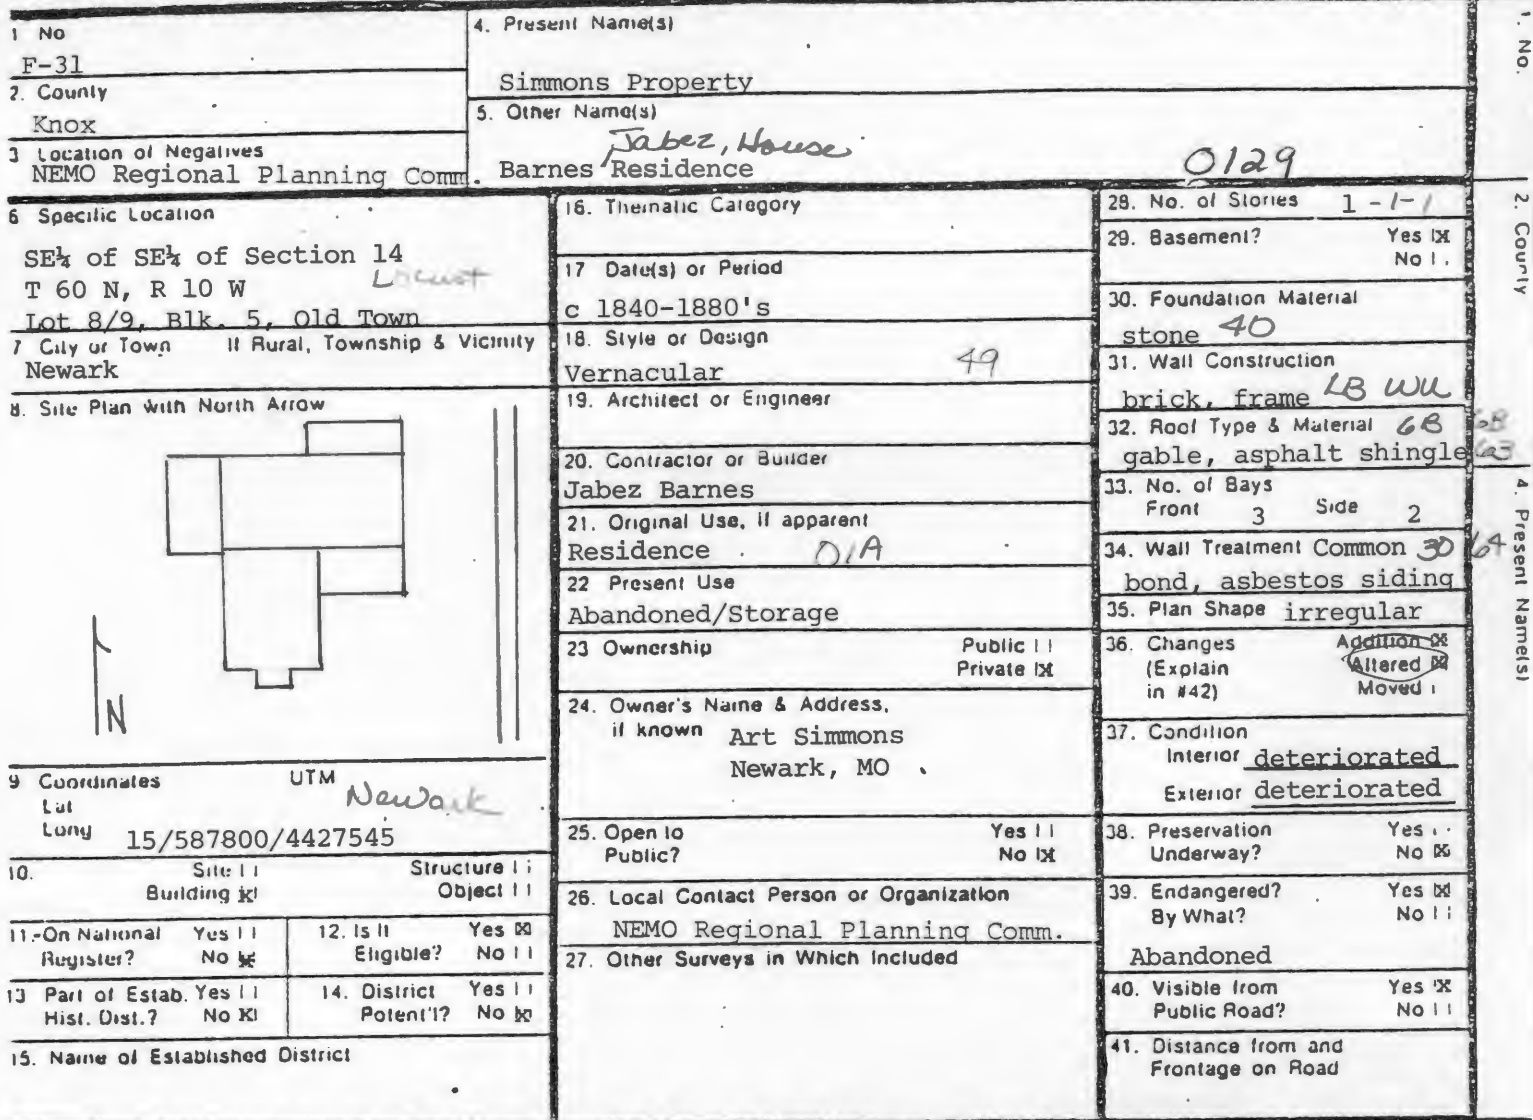 1 No
F-31
2. County
Knox
3 Location of Negatives
NEMO Regional Planning Comm.
4. Present Name(s)
Simmons Property
5. Other Name(s)
Jabez, House
Barnes Residence
0129
6 Specific Location
SE¼ of SE¼ of Section 14
T 60 N, R 10 W
Locust
Lot 8/9, Blk. 5, Old Town
7 City or Town If Rural, Township & Vicinity
Newark
8. Site Plan with North Arrow
N
9 Coordinates UTM
Lat
Newark
Long 15/587800/4427545
10. Site Structure
Building [X] Object
11. On National Register? Yes No [X]
12. Is It Eligible? Yes [X] No
13 Part of Estab. Hist. Dist.? Yes No [X]
14. District Potent'l? Yes No [X]
15. Name of Established District
16. Thematic Category
17 Date(s) or Period
c 1840-1880's
18. Style or Design
Vernacular 49
19. Architect or Engineer
20. Contractor or Builder
Jabez Barnes
21. Original Use, if apparent
Residence 01A
22 Present Use
Abandoned/Storage
23 Ownership Public
Private [X]
24. Owner's Name & Address,
if known Art Simmons
Newark, MO
25. Open to Yes
Public? No [X]
26. Local Contact Person or Organization
NEMO Regional Planning Comm.
27. Other Surveys in Which Included
28. No. of Stories 1 - 1 - 1
29. Basement? Yes [X]
No
30. Foundation Material
stone 40
31. Wall Construction
brick, frame LB WU
32. Roof Type & Material 6B
gable, asphalt shingle 63
33. No. of Bays
Front 3 Side 2
34. Wall Treatment Common 30 64
bond, asbestos siding
35. Plan Shape irregular
36. Changes Addition [X]
(Explain Altered [X]
in #42) Moved
37. Condition
Interior deteriorated
Exterior deteriorated
38. Preservation Yes
Underway? No [X]
39. Endangered? Yes [X]
By What? No
Abandoned
40. Visible from Yes [X]
Public Road? No
41. Distance from and
Frontage on Road
1. No.
2. County
4. Present Name(s)